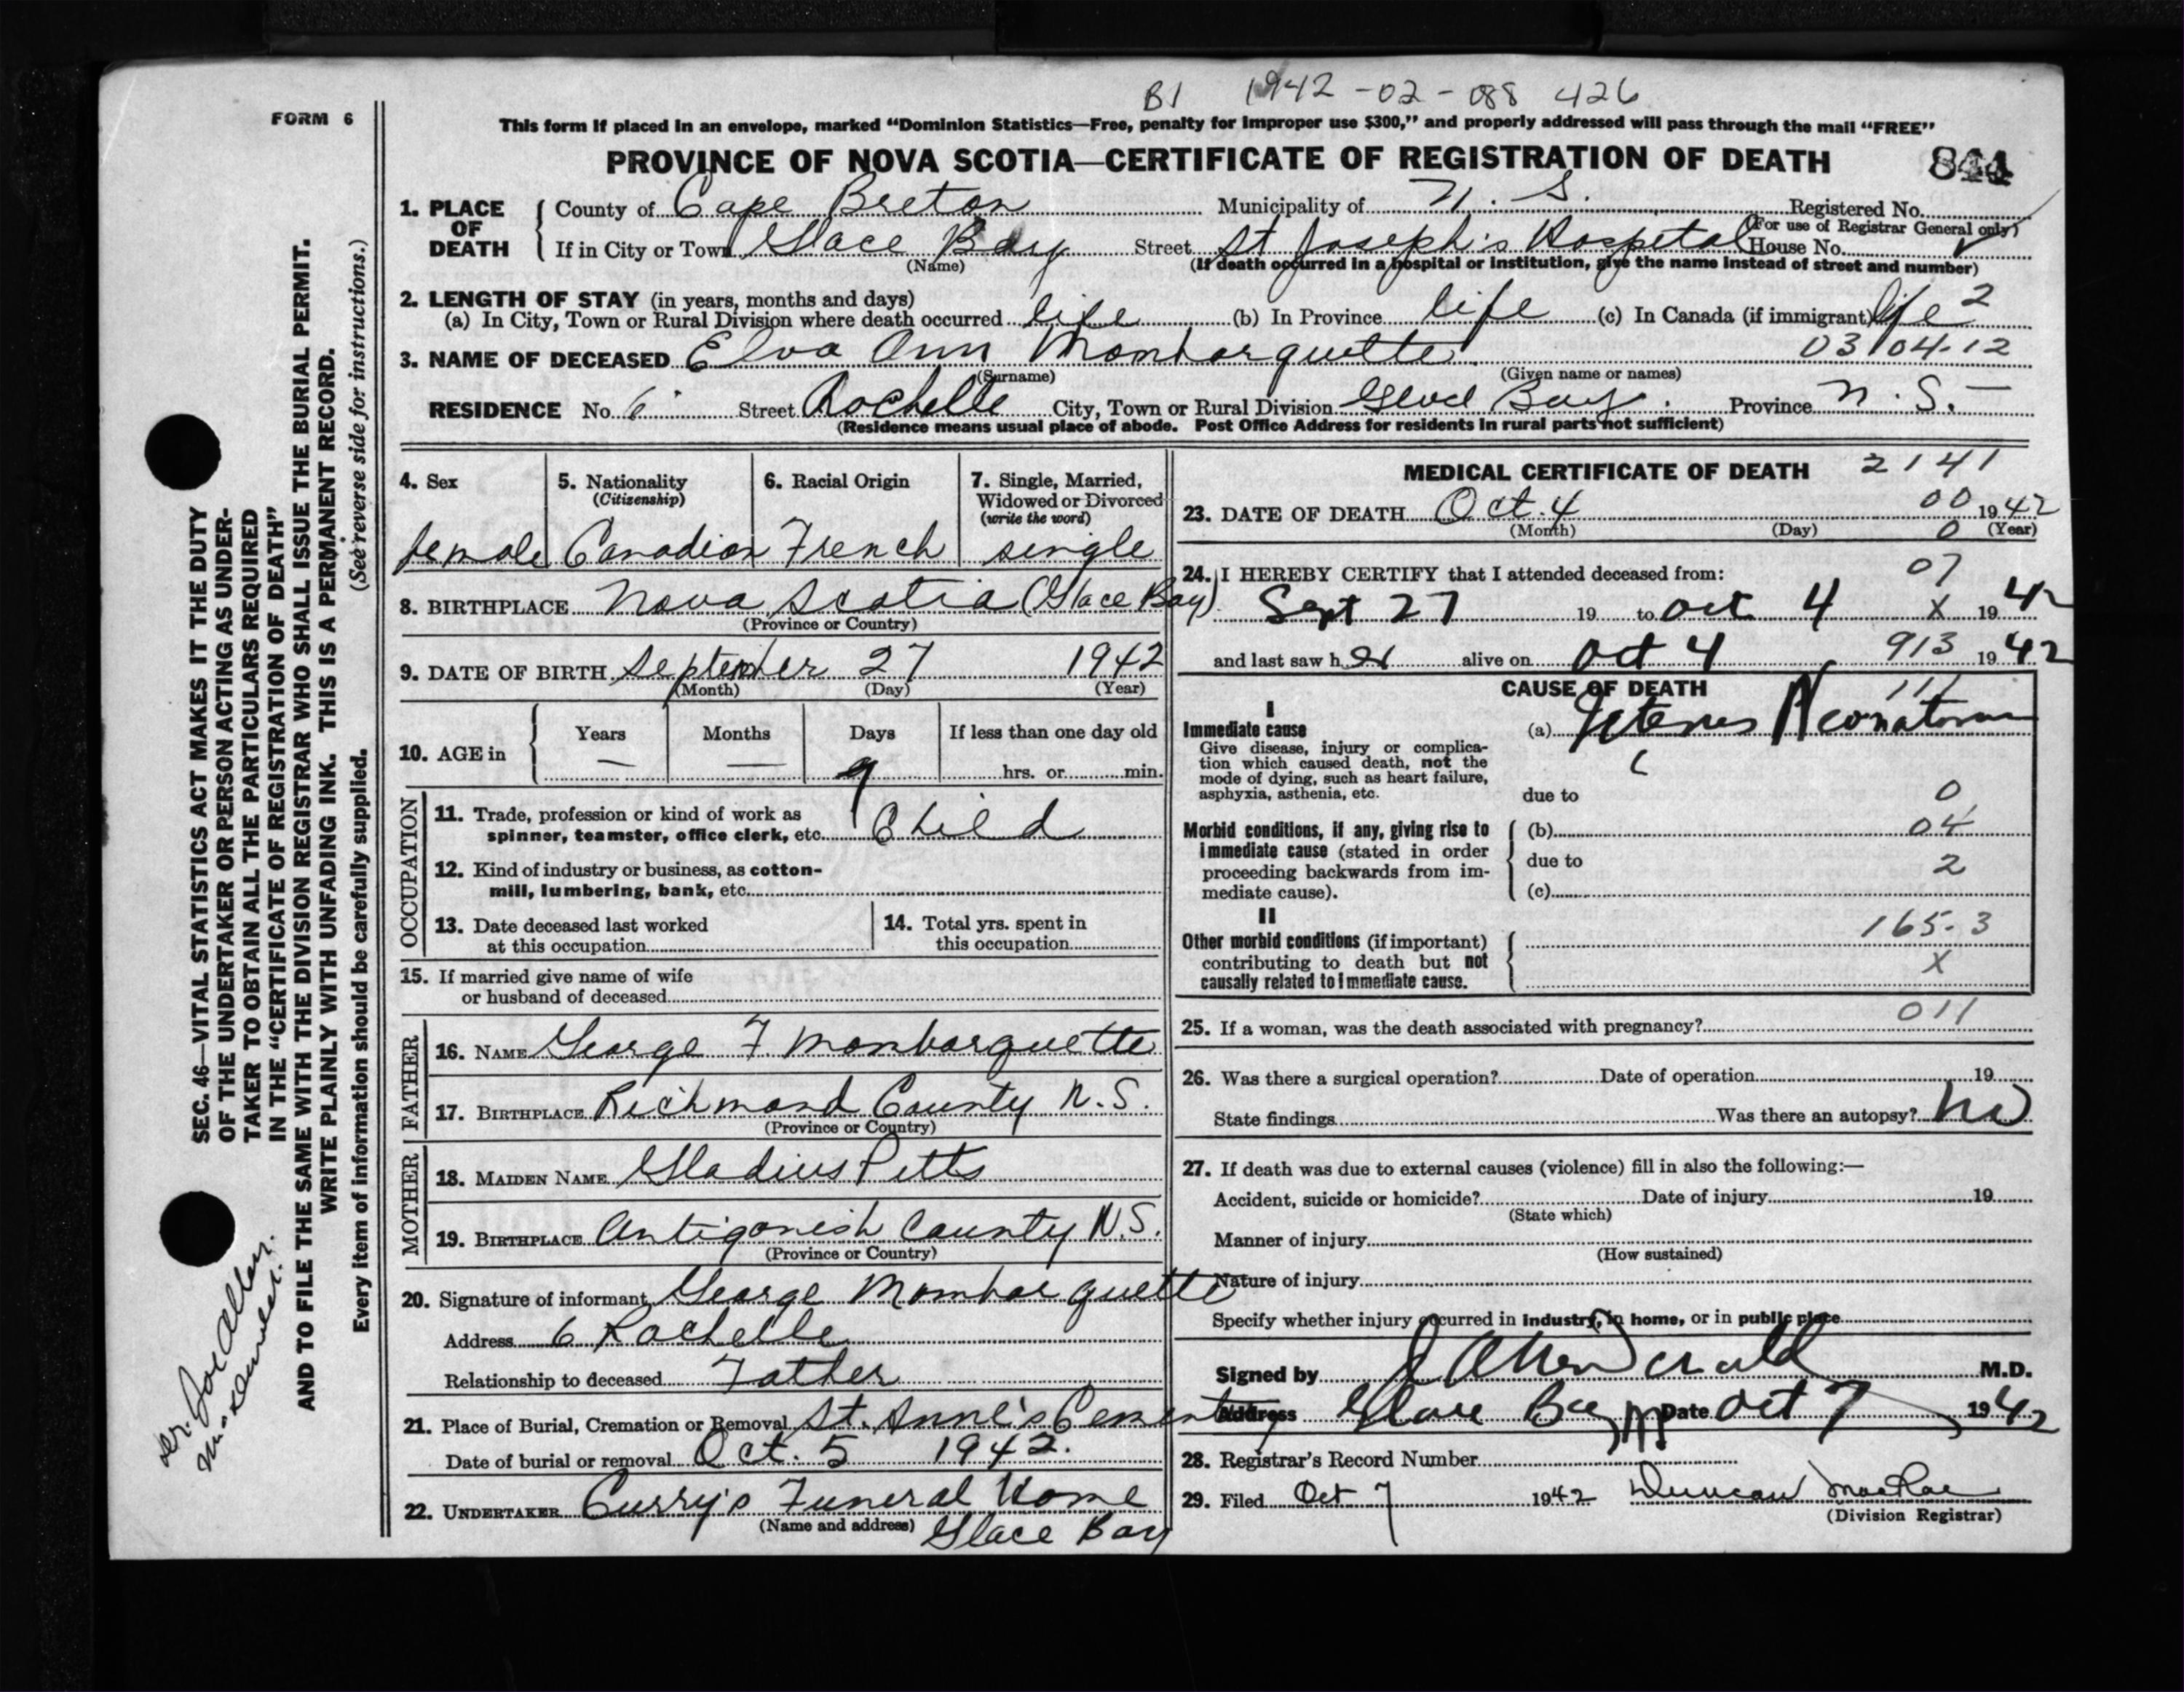 B1 1942-02-088 426
FORM 6
This form if placed in an envelope, marked “Dominion Statistics—Free, penalty for improper use $300,” and properly addressed will pass through the mail “FREE”
PROVINCE OF NOVA SCOTIA—CERTIFICATE OF REGISTRATION OF DEATH
1. PLACE OF DEATH { County of Cape Breton Municipality of N. S. Registered No.
(For use of Registrar General only)
If in City or Town Glace Bay Street St Joseph's Hospital House No.
(Name) (If death occurred in a hospital or institution, give the name instead of street and number)
2. LENGTH OF STAY (in years, months and days)
(a) In City, Town or Rural Division where death occurred life (b) In Province life (c) In Canada (if immigrant) life 2
3. NAME OF DECEASED Elva Ann Mombarquette 03 04-12
(Surname) (Given name or names)
RESIDENCE No. 6 Street Rochelle City, Town or Rural Division Glace Bay. Province N. S. —
(Residence means usual place of abode. Post Office Address for residents in rural parts not sufficient)
4. Sex 5. Nationality (Citizenship) 6. Racial Origin 7. Single, Married, Widowed or Divorced (write the word)
female Canadian French single
8. BIRTHPLACE Nova Scotia (Glace Bay)
(Province or Country)
9. DATE OF BIRTH September 27 1942
(Month) (Day) (Year)
10. AGE in { Years Months Days If less than one day old
— — 9 hrs. or min.
OCCUPATION
11. Trade, profession or kind of work as
spinner, teamster, office clerk, etc. Child
12. Kind of industry or business, as cotton-
mill, lumbering, bank, etc.
13. Date deceased last worked
at this occupation
14. Total yrs. spent in
this occupation
15. If married give name of wife
or husband of deceased
FATHER
16. NAME George F. Mombarquette
17. BIRTHPLACE Richmond County N. S.
(Province or Country)
MOTHER
18. MAIDEN NAME Gladius Pitts
19. BIRTHPLACE Antigonish County N.S.
(Province or Country)
20. Signature of informant George Mombarquette
Address 6 Rochelle
Relationship to deceased Father
21. Place of Burial, Cremation or Removal St. Anne's Cementary
Date of burial or removal Oct. 5 1942.
22. UNDERTAKER Curry's Funeral Home
(Name and address) Glace Bay
MEDICAL CERTIFICATE OF DEATH 2141
23. DATE OF DEATH Oct. 4 00 1942
(Month) (Day) 0 (Year)
24. I HEREBY CERTIFY that I attended deceased from: 07
Sept 27 19 to Oct 4 X 1942
and last saw her alive on Oct 4 913 1942
CAUSE OF DEATH 111
I
Immediate cause (a) Icterus Neonatorum
Give disease, injury or complica-
tion which caused death, not the
mode of dying, such as heart failure,
asphyxia, asthenia, etc.
due to 0
Morbid conditions, if any, giving rise to
immediate cause (stated in order
proceeding backwards from im-
mediate cause).
(b) 04
due to 2
(c)
II
165-3
Other morbid conditions (if important)
contributing to death but not
causally related to immediate cause.
X
25. If a woman, was the death associated with pregnancy? 011
26. Was there a surgical operation? Date of operation 19
State findings Was there an autopsy? no
27. If death was due to external causes (violence) fill in also the following:—
Accident, suicide or homicide? Date of injury 19
(State which)
Manner of injury
(How sustained)
Nature of injury
Specify whether injury occurred in industry, in home, or in public place
Signed by M.D.
Address Glace Bay Date Oct 7 1942
28. Registrar's Record Number
29. Filed Oct 7 1942 Duncan MacRae
(Division Registrar)
SEC. 46—VITAL STATISTICS ACT MAKES IT THE DUTY
OF THE UNDERTAKER OR PERSON ACTING AS UNDER-
TAKER TO OBTAIN ALL THE PARTICULARS REQUIRED
IN THE “CERTIFICATE OF REGISTRATION OF DEATH”
AND TO FILE THE SAME WITH THE DIVISION REGISTRAR WHO SHALL ISSUE THE BURIAL PERMIT.
WRITE PLAINLY WITH UNFADING INK. THIS IS A PERMANENT RECORD.
Every item of information should be carefully supplied. (See reverse side for instructions.)